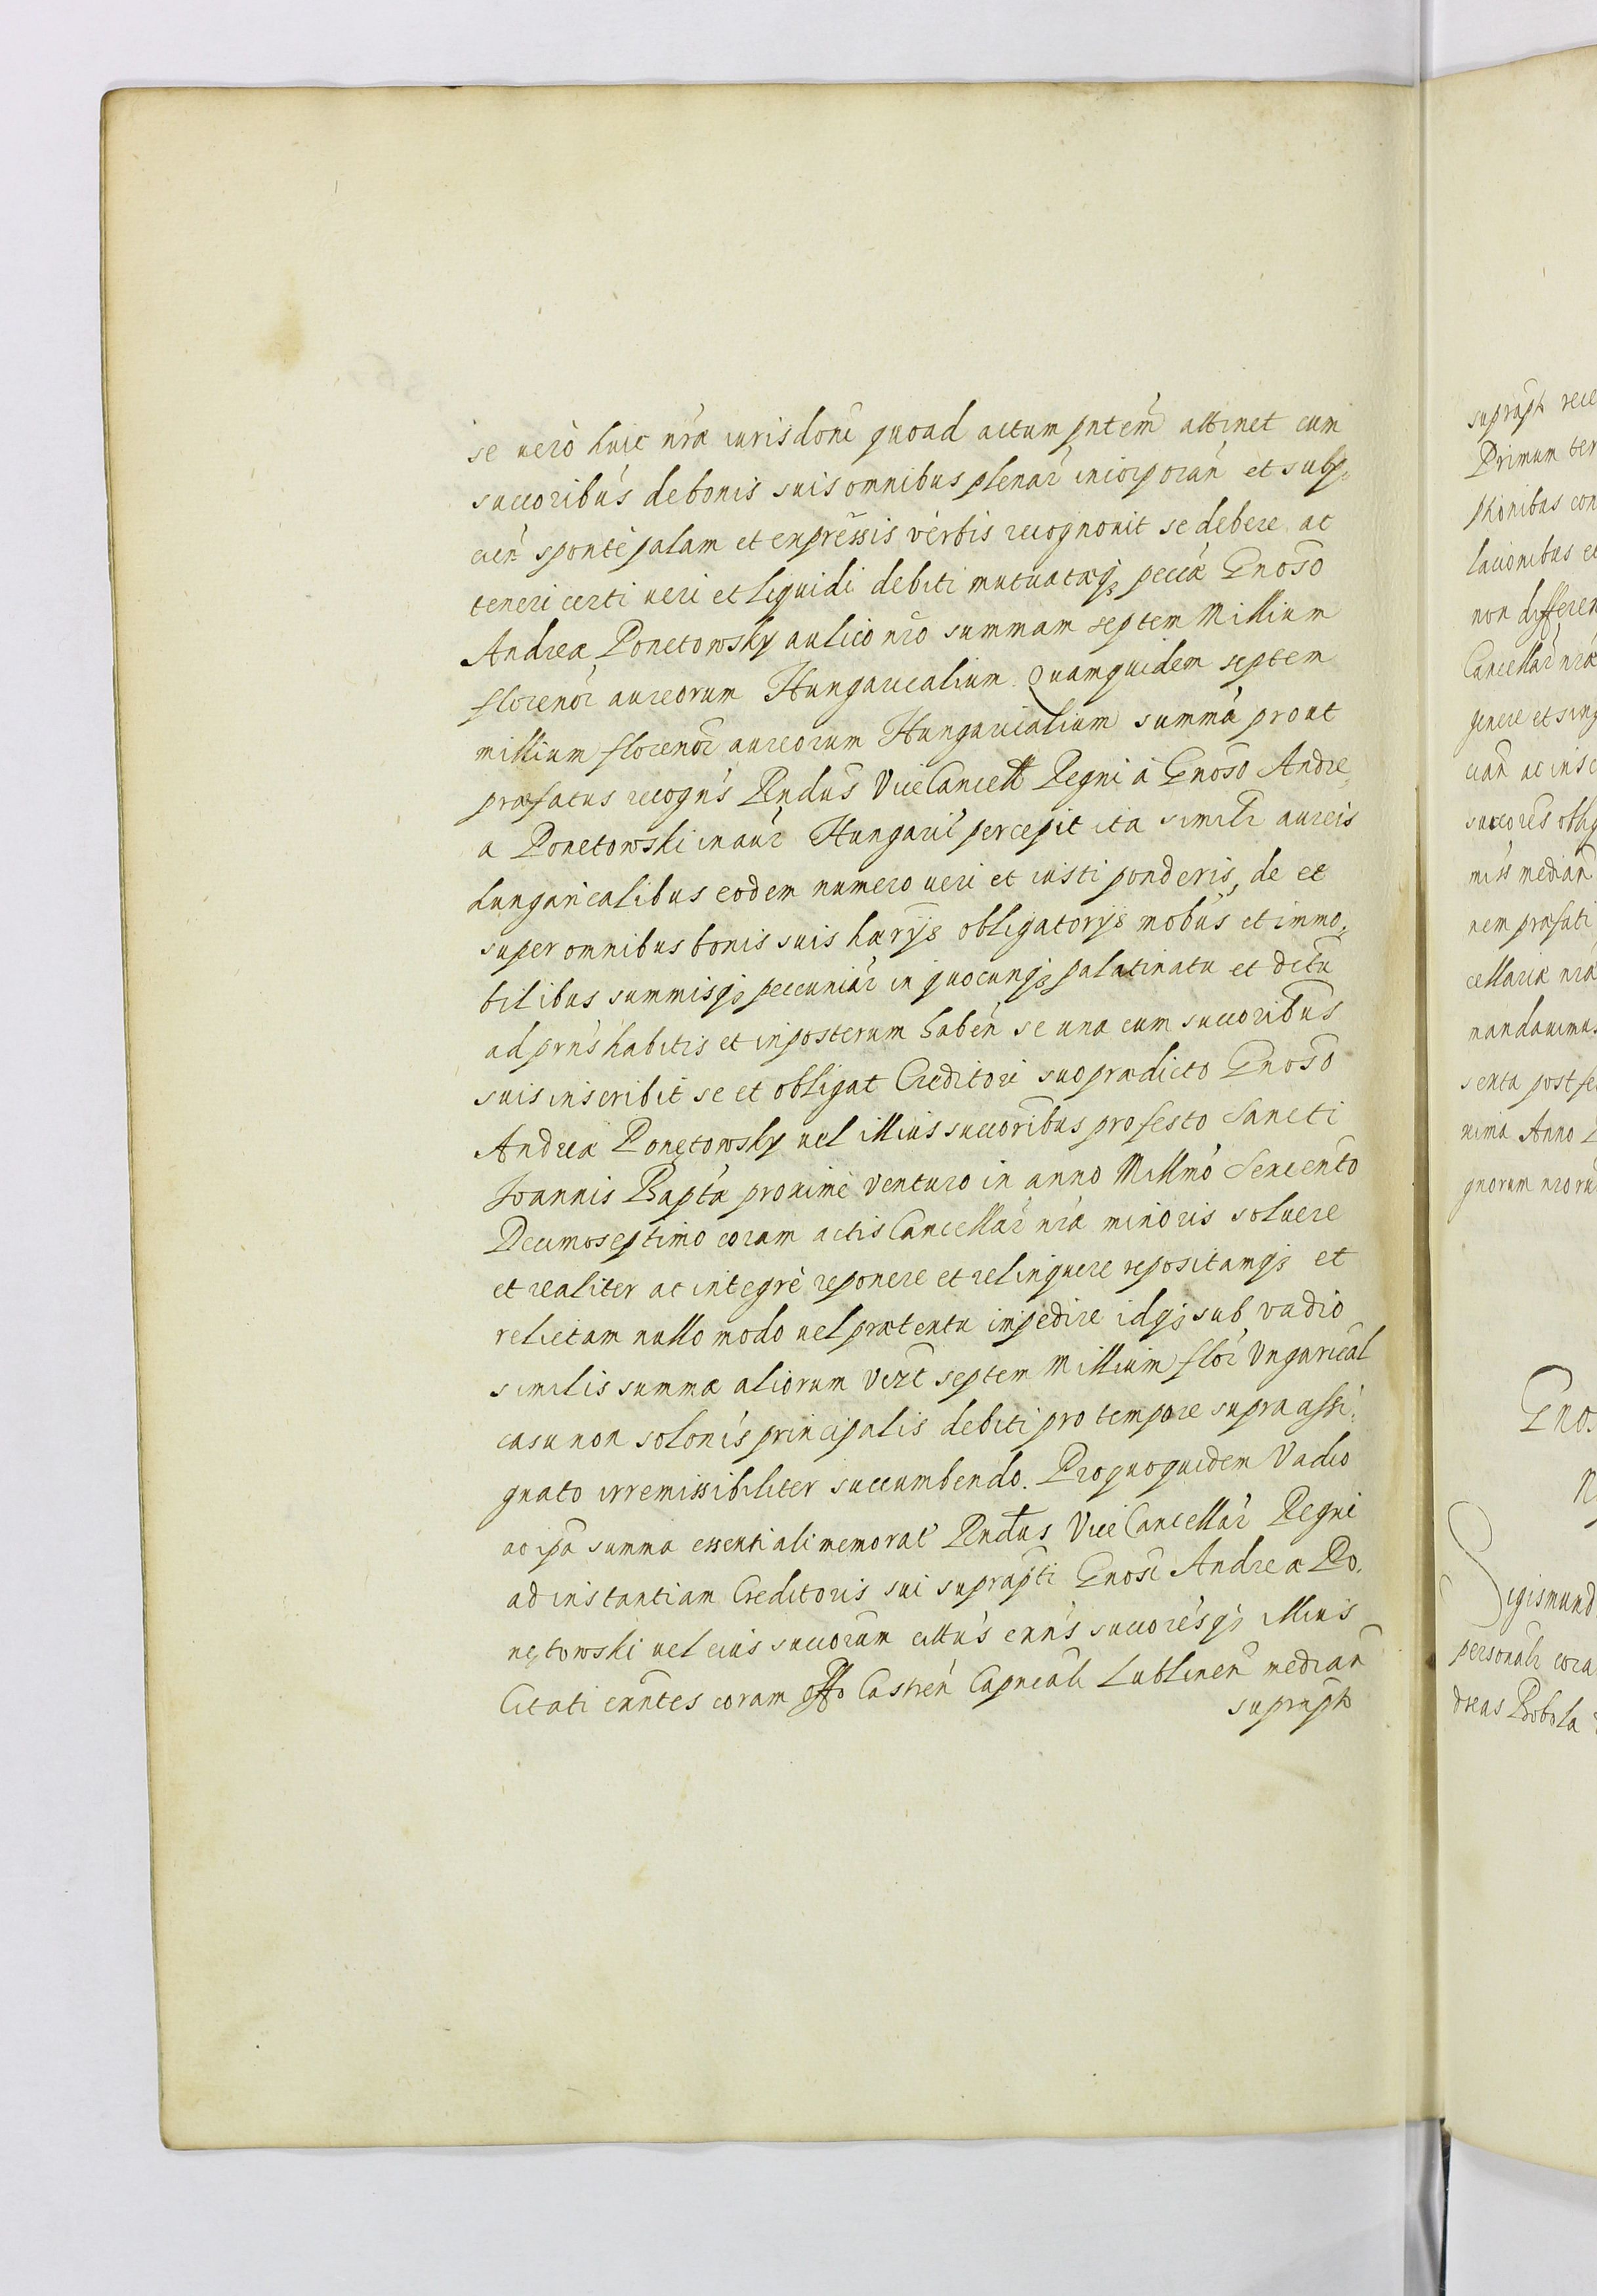 se vero huic nrã iurisdoni quoad actum pntem attinet cum
succoribus de bonis suis omnibus plenar incorporan et subÿ
cien sponte palam et expressis verbis recognouit se debere ac
teneri certi veri et liquidi debiti mutuatæq; peccæ Gnoso
Andreæ Ponetowsky aulico nro summam septem Millium
florenor aureorum Hungaricalium. Quamquidem septem
millium florenor aureorum Hungaricalium summã prout
præfatus recogns Rndus Vice Cancell Regni a Gnoso Andre
a Ponetowski in aur Hungaril percepit ita simili aureis
hungaricalibus eodem numero veri et iusti ponderis, de et
super omnibus bonis suis hærÿs obligatorÿs mobus et immo
bilibus summisq; peccuniar in quocunq; palatinatu et dctu
ad prns habitis et inposterum haben se una cum succoribus
suis inscribit se et obligat Creditori suo prædicto Gnoso
Andreæ Ponętowsky vel illius succoribus pro festo Sancti
Joannis Baptæ proxime venturo in anno Millmo Sexcento
Decimoseptimo coram actis Cancellar nræ minoris soluere
et realiter ac integrè reponere et relinquere repositamq; et
relictam nullo modo vel prætextu impedire idq; sub vadio
similis summæ aliorum vere septem Millium flor Vngarical
casu non solonis principalis debiti pro tempore supra assi
gnato irremissibiliter succumbendo. Pro quoquidem Vadio
ac ipa summa essentiali memorat Rndus Vice Cancellar Regni
ad instantiam Creditoris sui suprapti Gnosi Andreæ Po.
nętowski vel eius succorum cittus exns succoresq; illius
Citati exntes coram offo Castren Capneali Lublinen median
supraph
supraph rece
Primum ter
ptionibus con
lationibus et
non differen
Cancellar nræ
genere et sing
cian ac insc
succores oblig
miss median
nem præfati
cellariæ nræ
mandauimus
sexta post fe
nima Anno
gnorum nroru
Gnos
Sigismund
personali cora
dreas Bobola